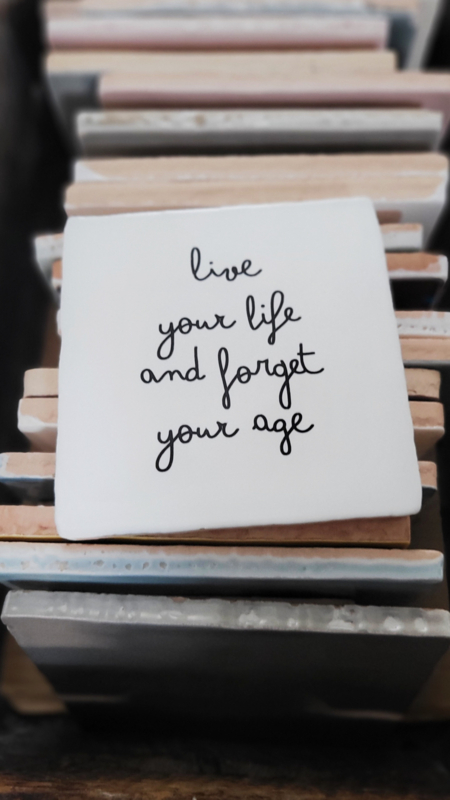 live
your life
and forget
your age